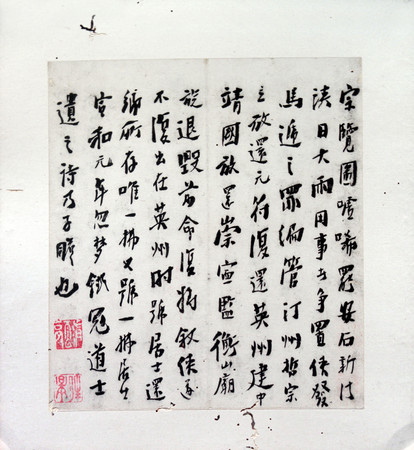 宗覽圖噓唏罷安石新法
浹日大雨用事者爭置俠發
馬遞之罪編管汀州哲宗
立放還元符復還英州建中
靖國放還崇寧監衡山廟
旋追毀前命復將叙俠遂
不復出仕英州時號居士還
鄉所存唯一拂又號一拂居士
宣和元年忽夢鐵冠道士
遺之詩乃子瞻也